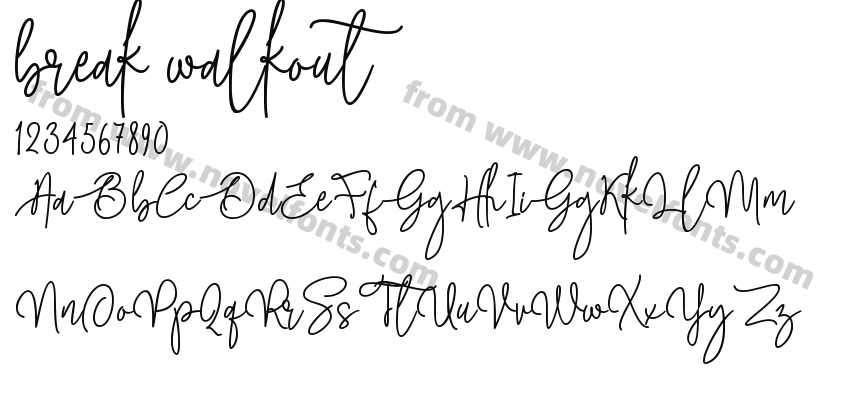 break walkout
1234567890
AaBbCcDdEeFfGgHhIiGgKkLlMm
NnOoPpQqRrSsTtUuVvWwXxYyZz
from www.novelfonts.com
from www.novelfonts.com